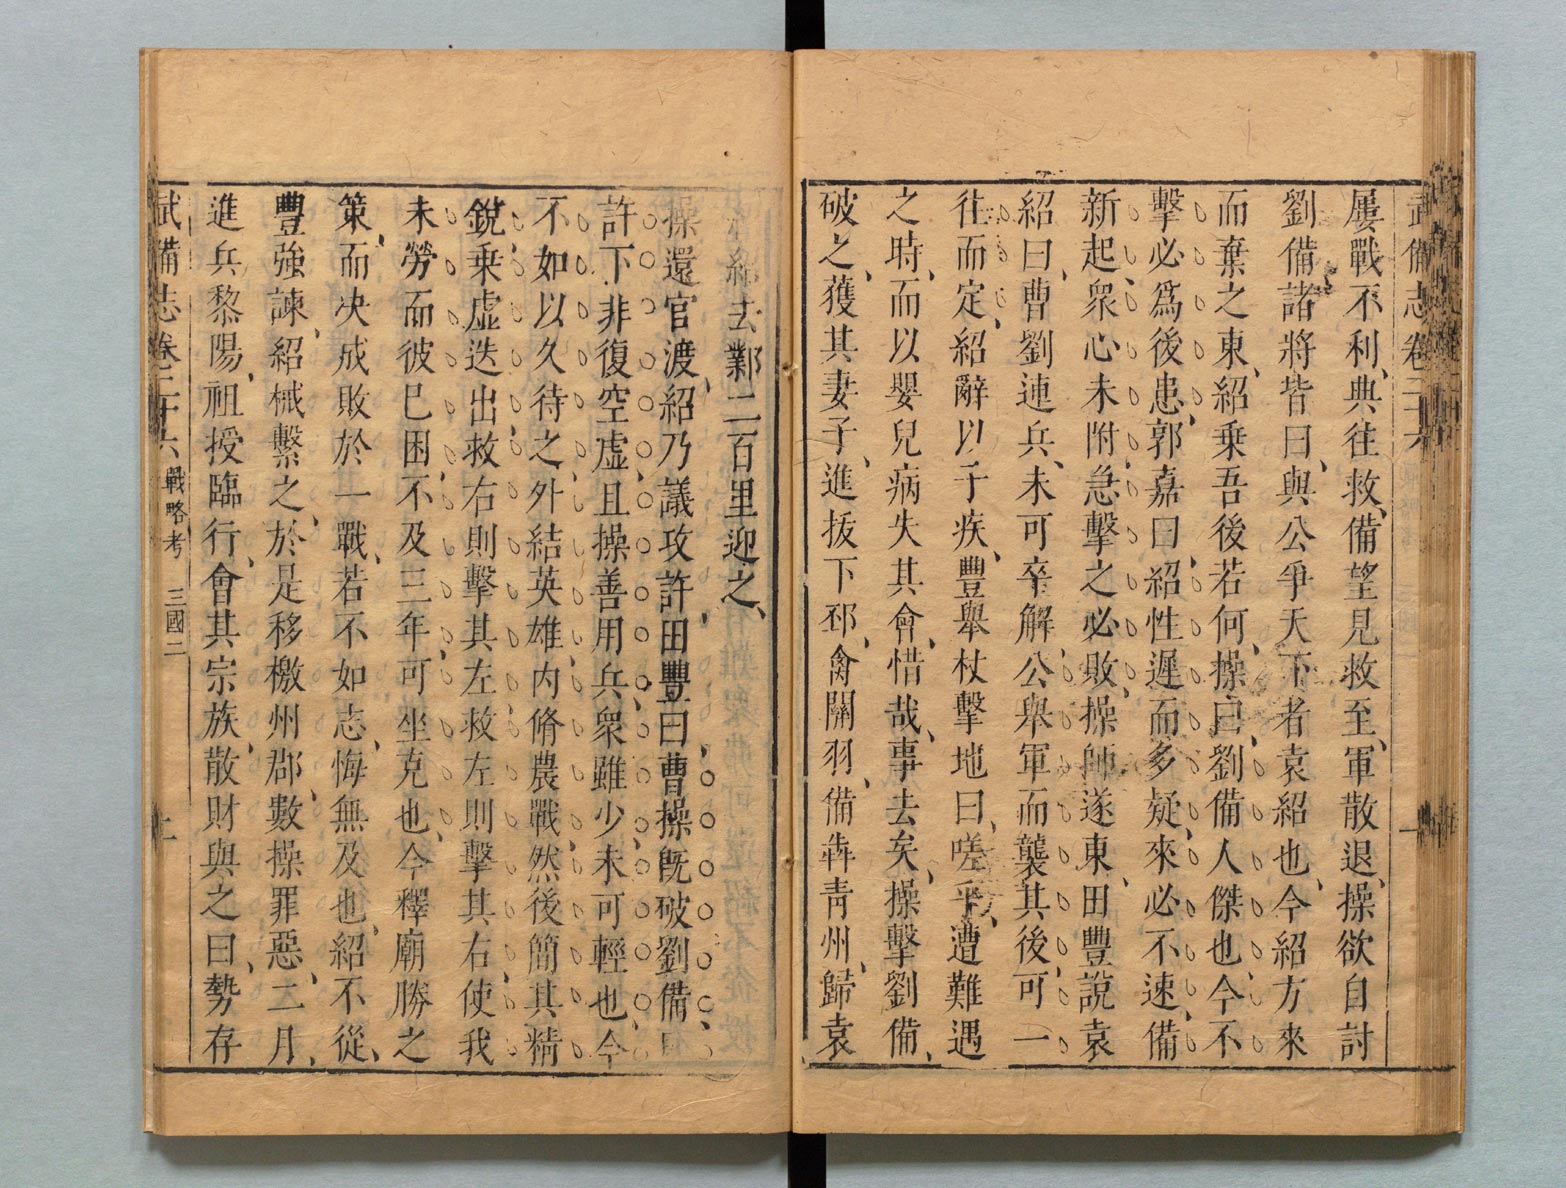 武備志卷二十六
屢戰不利典往救備望見救至軍散退操欲自討
劉備諸將皆曰與公爭天下者袁紹也今紹方來
而棄之東紹乗吾後若何操曰劉備人傑也今不
擊必爲後患郭嘉曰紹性遲而多疑來必不速備
新起衆心未附急擊之必敗操師遂東田豐說袁
紹曰曹劉連兵未可卒解公舉軍而襲其後可一
往而定紹辭以子疾豐舉杖擊地曰嗟乎遭難遇
之時而以嬰兒病失其會惜哉事去矣操擊劉備
破之獲其妻子進拔下邳禽關羽備犇青州歸袁
紹紹去鄴二百里迎之
操還官渡紹乃議攻許田豐曰曹操旣破劉備
許下非復空虛且操善用兵衆雖少未可輕也今
不如以久待之外結英雄内脩農戰然後簡其精
銳乗虛迭出救右則擊其左救左則擊其右使我
未勞而彼已困不及三年可坐克也今釋廟勝之
策而决成敗於一戰若不如志悔無及也紹不從
豐強諫紹械繫之於是移檄州郡數操罪惡二月
進兵黎陽沮授臨行會其宗族散財與之曰勢存
武備志卷二十六 戰略考 三國二